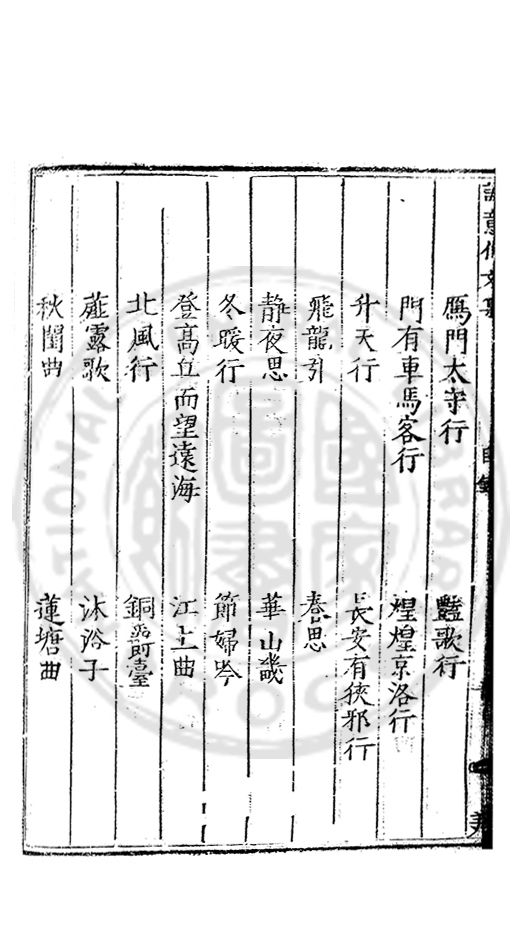 鴈門太守行　豔歌行
門有車馬客行　煌煌京洛行
升天行　長安有狹邪行
飛龍引　春思
靜夜思　華山畿
冬暖行　節婦吟
登高丘而望遠海　江上曲
北風行　銅雀臺
薤露歌　沐浴子
秋閨曲　蓮塘曲